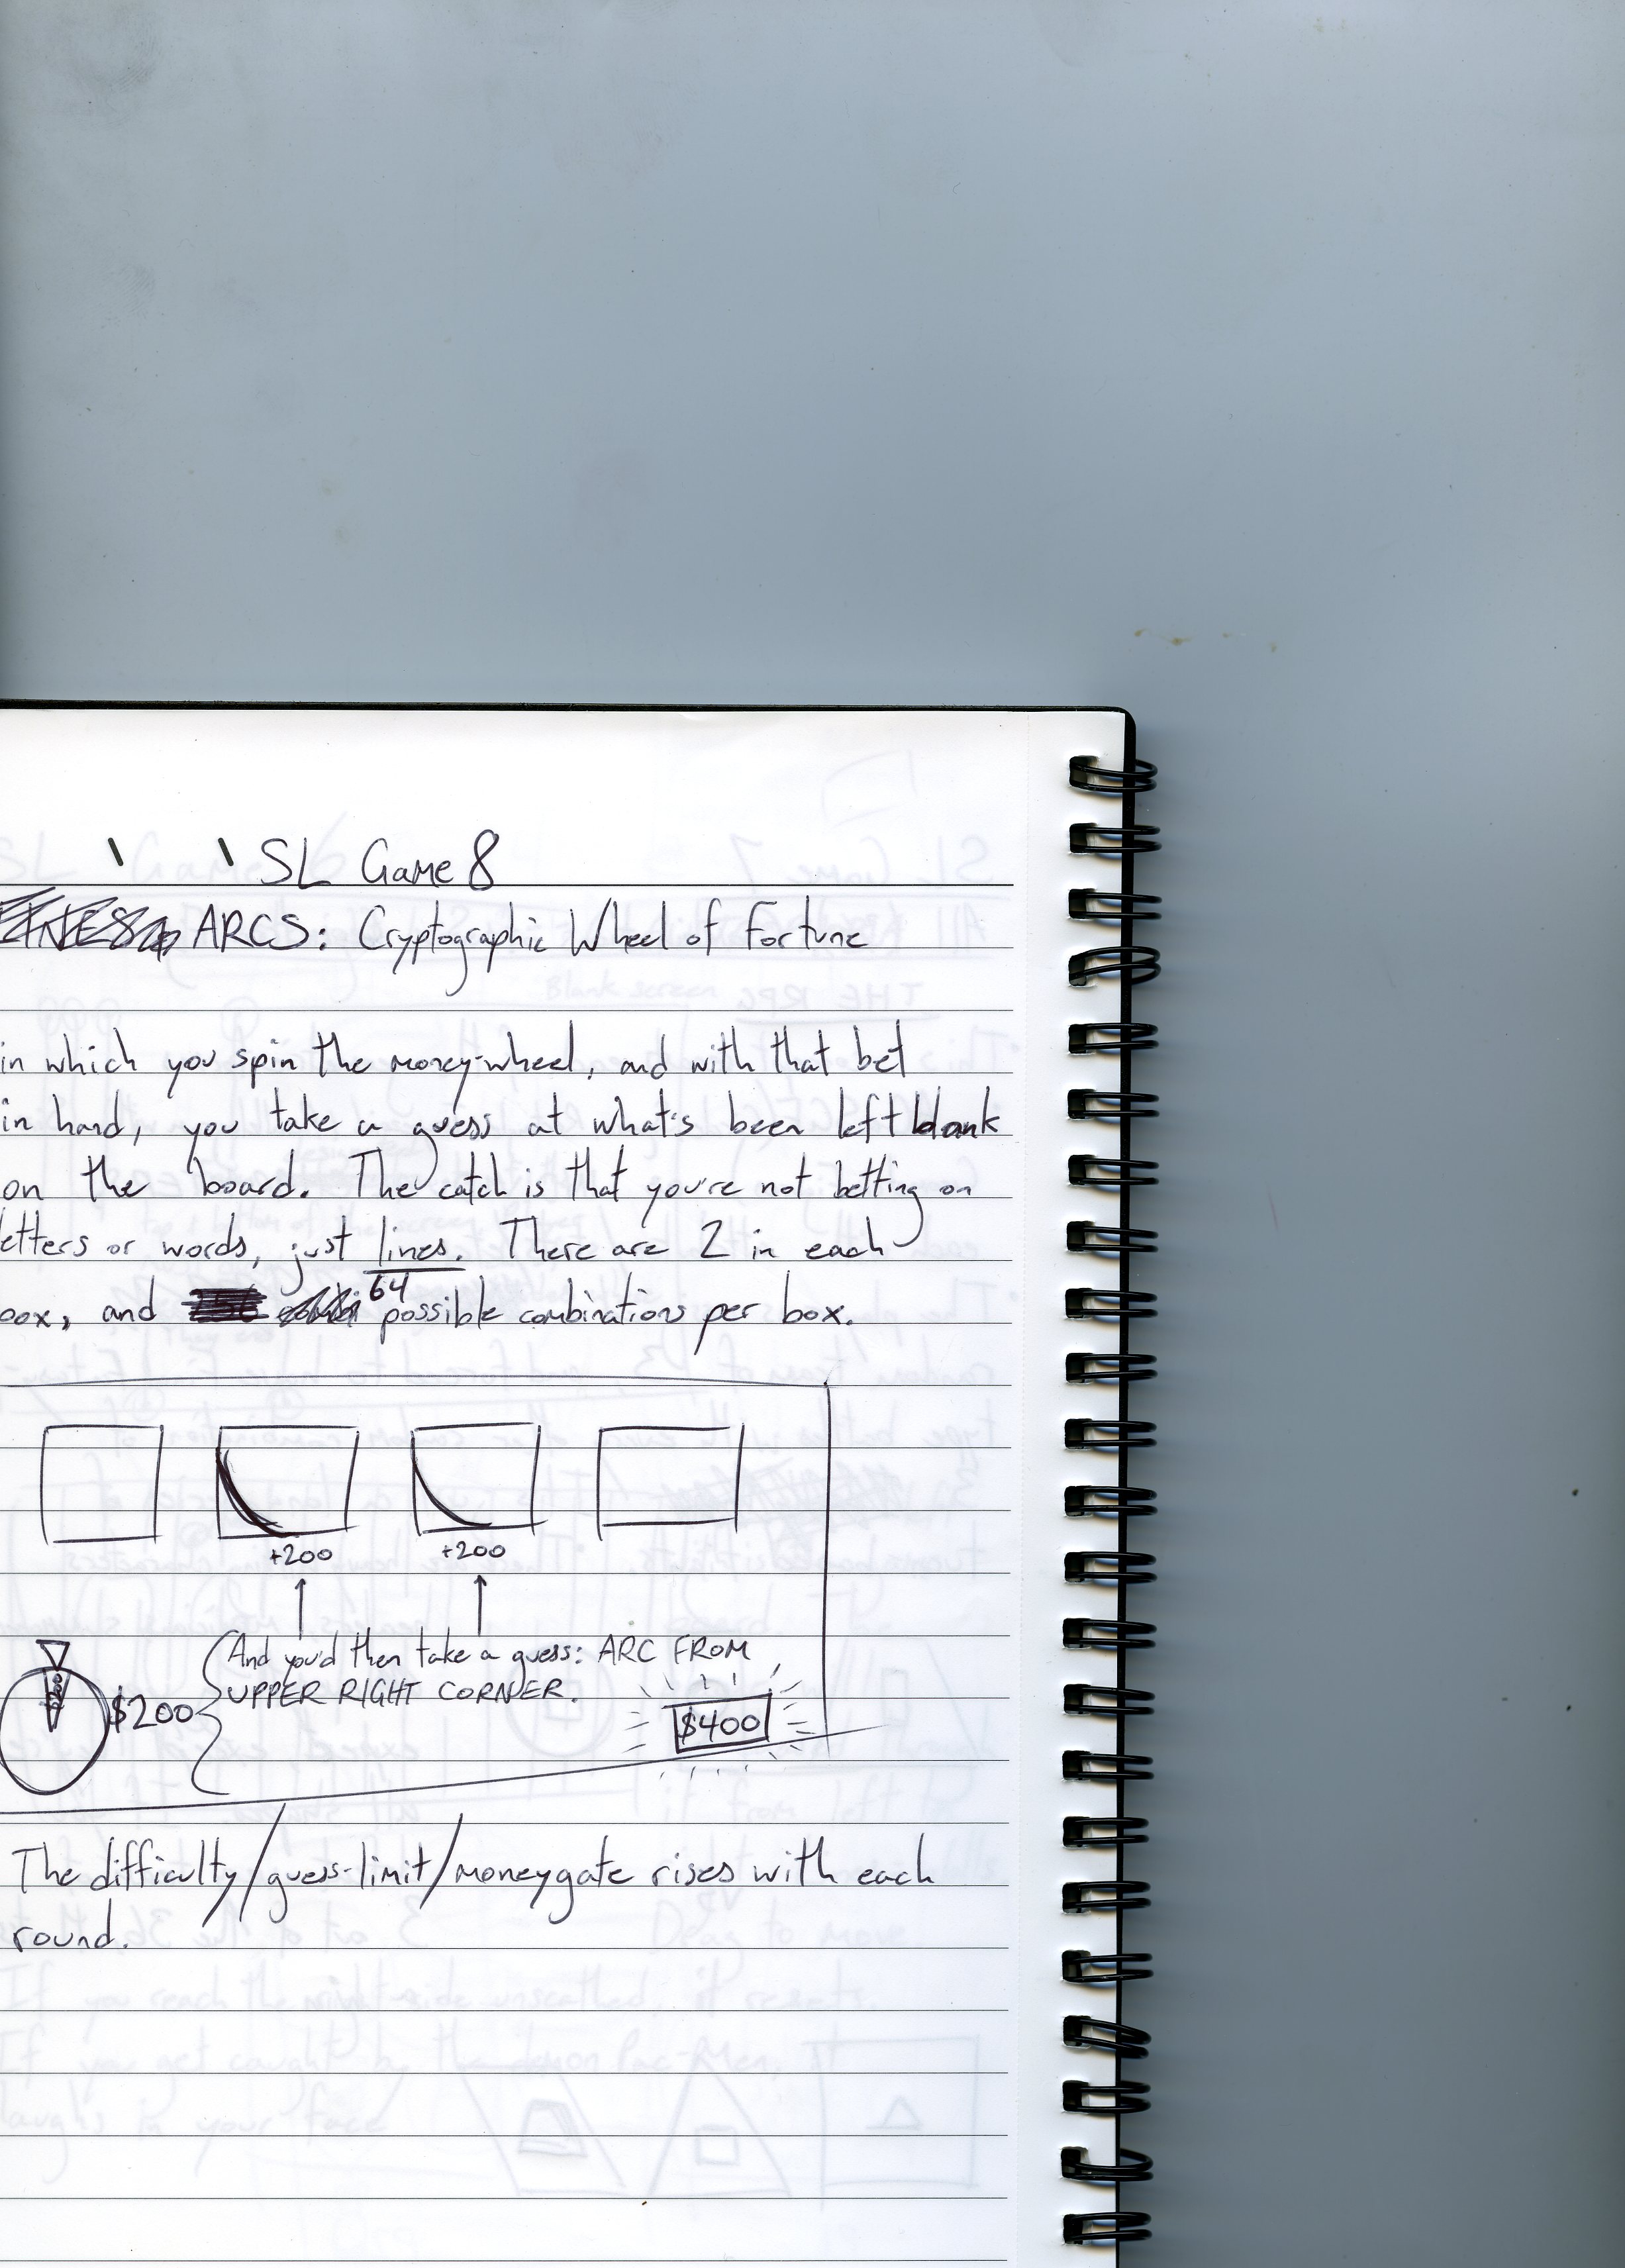 SL Game 8
ARCS: Cryptographic Wheel of Fortune
in which you spin the money-wheel, and with that bet
in hand, you take a guess at what's been left blank
on the board. The catch is that you're not betting on
etters or words, just lines. There are 2 in each
box, and 64 possible combinations per box.
+200 +200
And you'd then take a guess: ARC FROM
UPPER RIGHT CORNER.
$200
$200
$400
The difficulty/guess-limit/moneygate rises with each
round.